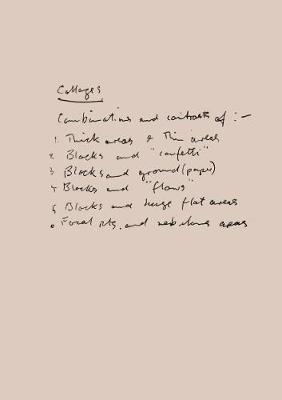 Collages
Combinations and contrasts of :-
1. Thick areas & thin areas
2 Blocks and "confetti"
3 Blocks and ground (paper)
4 Blocks and "flows"
5 Blocks and large flat areas
6 Focal pts. and nebulous areas